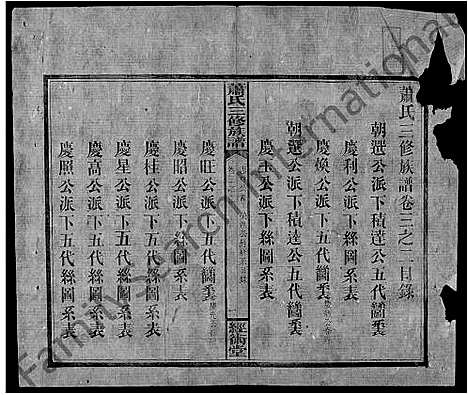 蕭氏三修族譜卷三之二目錄
朝選公派下積達公五代圖表
慶利公派下絲圖系表
慶煥公派下五代圖表
朝選公派下積達公五代圖表
慶玉公派下絲圖系表
蕭氏三修族譜
經術堂
慶旺公派下五代圖表
慶昭公派下五代絲圖系表
慶桂公派下五代絲圖系表
慶星公派下五代絲圖系表
慶高公派下五代絲圖系表
慶照公派下五代絲圖系表
FamilySearch International